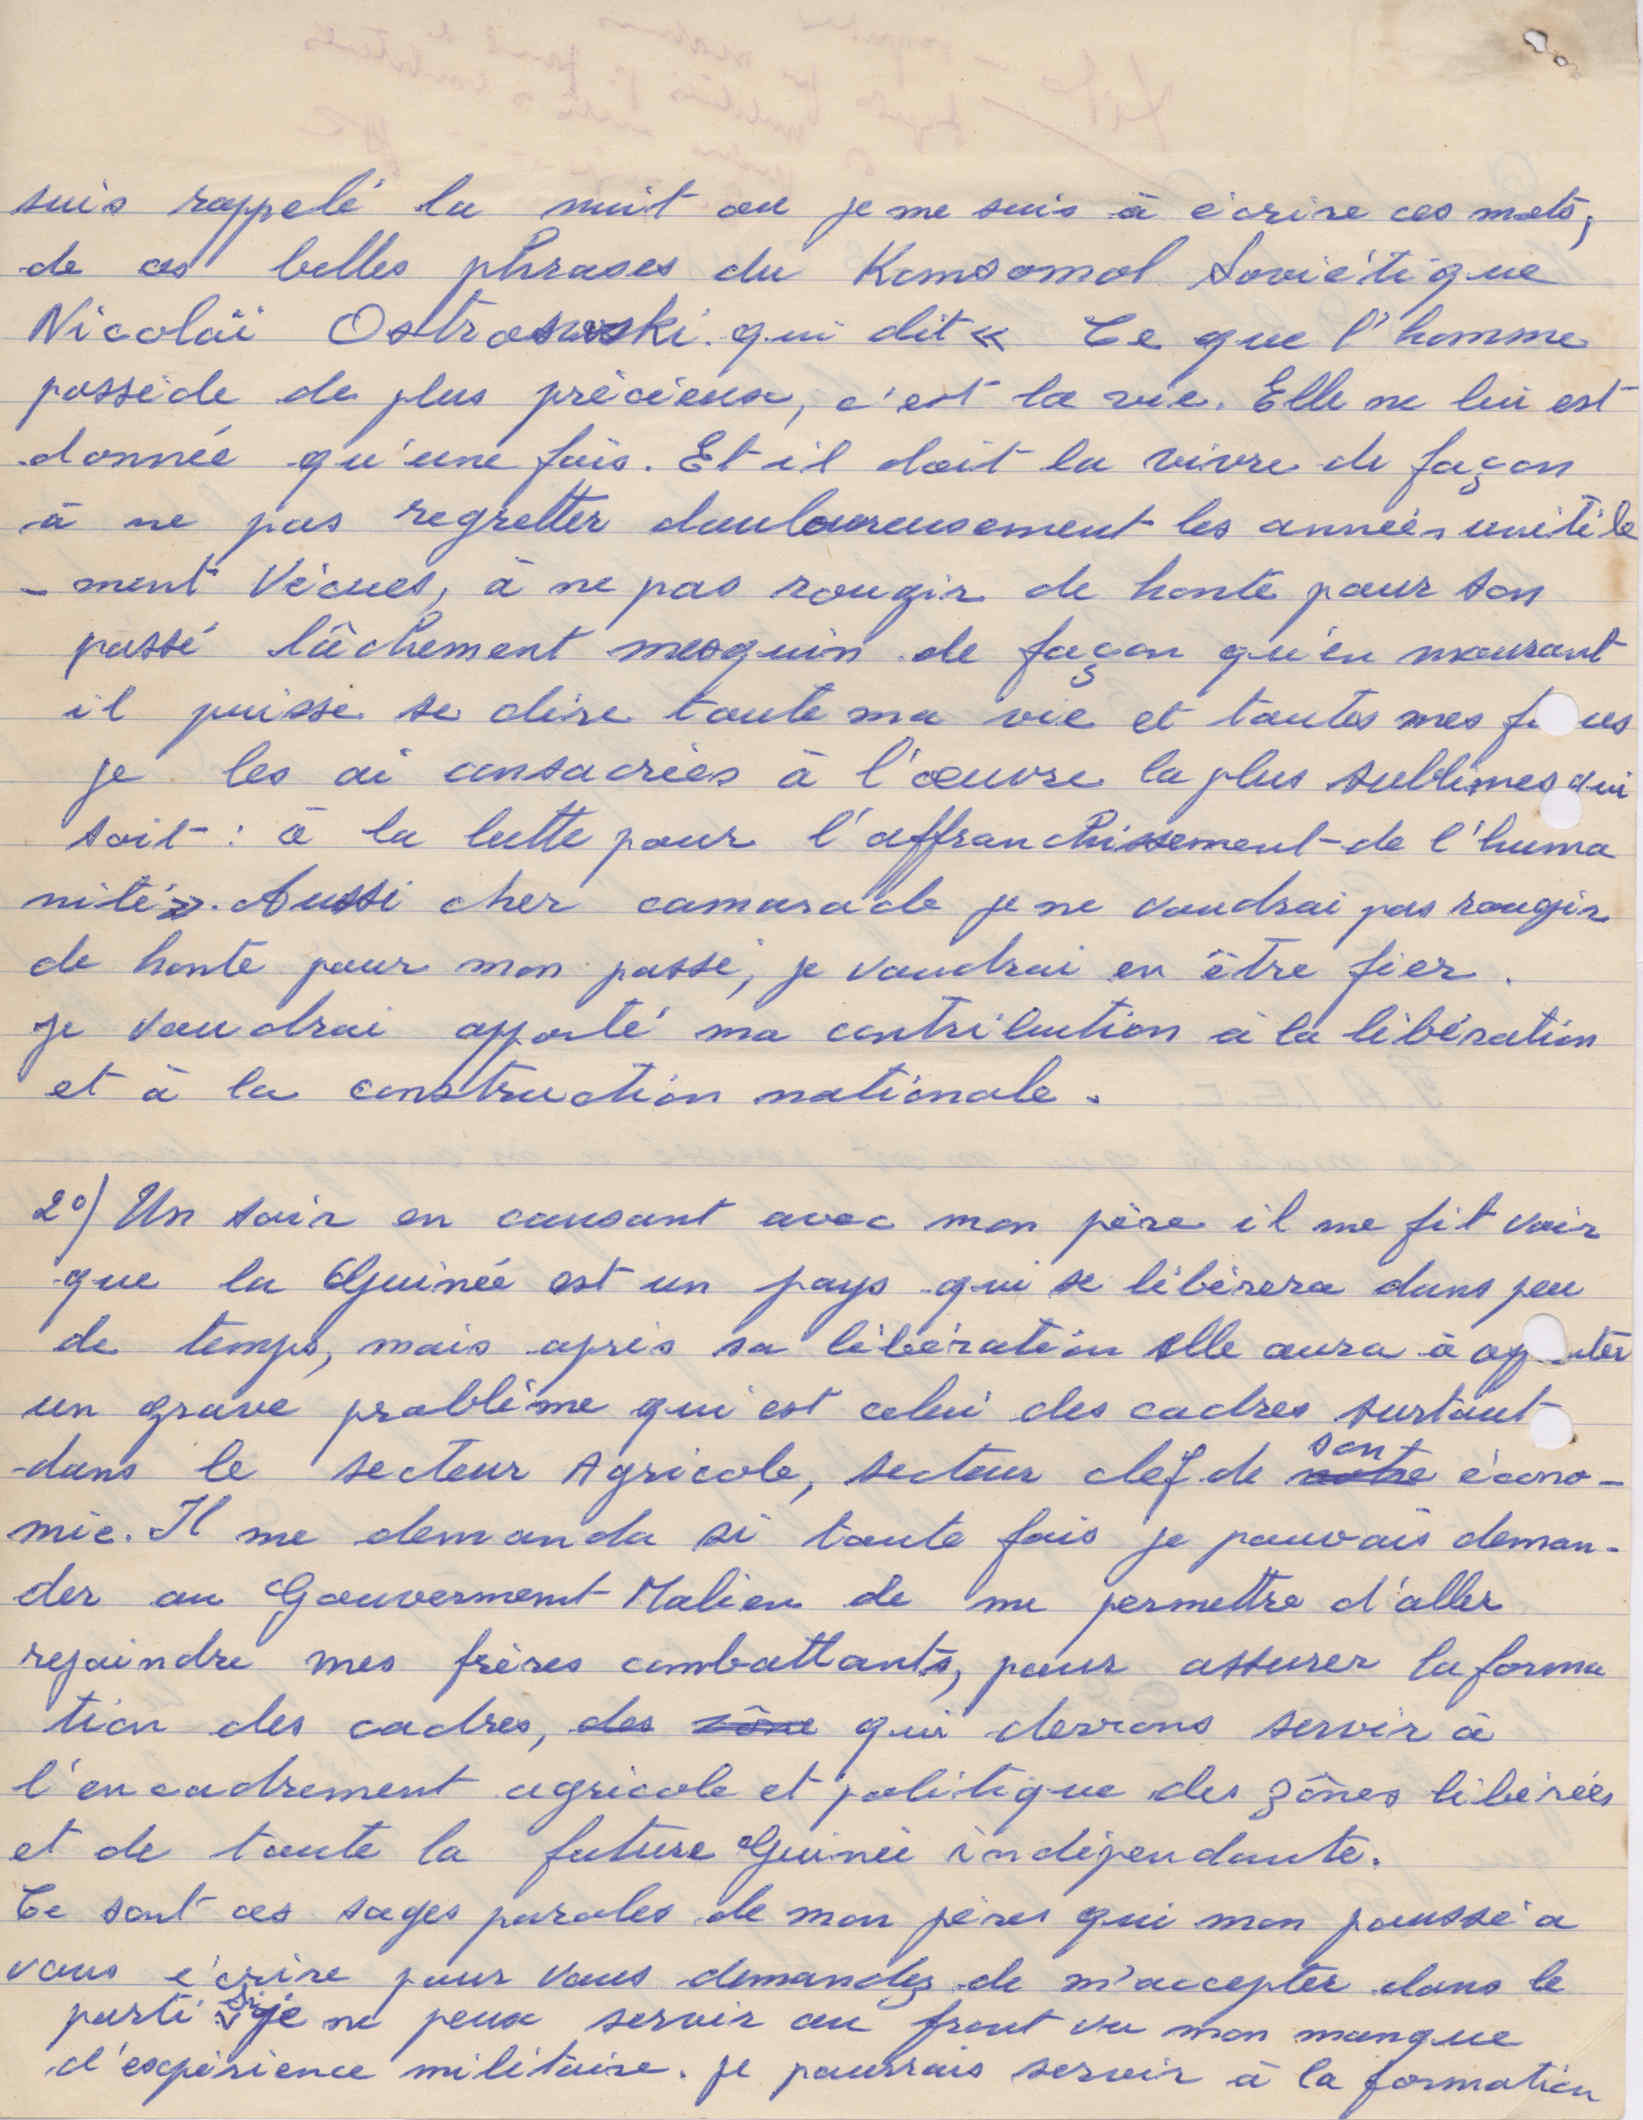 suis rappelé la nuit ou je me suis à écrire ces mots,
de ces belles phrases du Komsomol Soviétique
Nicolaï Ostrowski qui dit « Ce que l'homme
possède de plus précieux, c'est la vie. Elle ne lui est
donnée qu'une fois. Et il doit la vivre de façon
à ne pas regretter douloureusement les années
- ment Vécues, à ne pas rougir de honte pour son
passé lâchement mesquin de façon qu'en mourant
il puisse se dire toute ma vie et toutes mes
je les ai consacrées à l'œuvre la plus sublimes qui
soit : à la lutte pour l'affranchissement de l'huma
nité ». Aussi cher camarade je ne voudrai pas rougir
de honte pour mon passé, je voudrai en être fier.
Je voudrai apporté ma contribution à la libération
et à la construction nationale.
2°/ Un soir en causant avec mon père il me fit voir
que la Guinée est un pays qui se libèrera dans peu
de temps, mais après sa libération elle aura à
un grave problème qui est celui des cadres surtout
dans le secteur Agricole, secteur clef de notre son écono-
mie. Il me demanda si toute fois je pouvais deman-
der au Gouvernement Malien de me permettre d'aller
rejoindre mes frères combattants, pour assurer la forma
tion des cadres, des zône qui devrons servir à
l'encadrement agricole et politique des zônes libérées
et de toute la future Guinée indépendante.
Ce sont ces sages paroles de mon pères qui mon poussé a
vous écrire pour vous demandez de m'accepter dans le
parti si je ne peux servir au front vu mon manque
d'expérience militaire. je pourrais servir à la formation